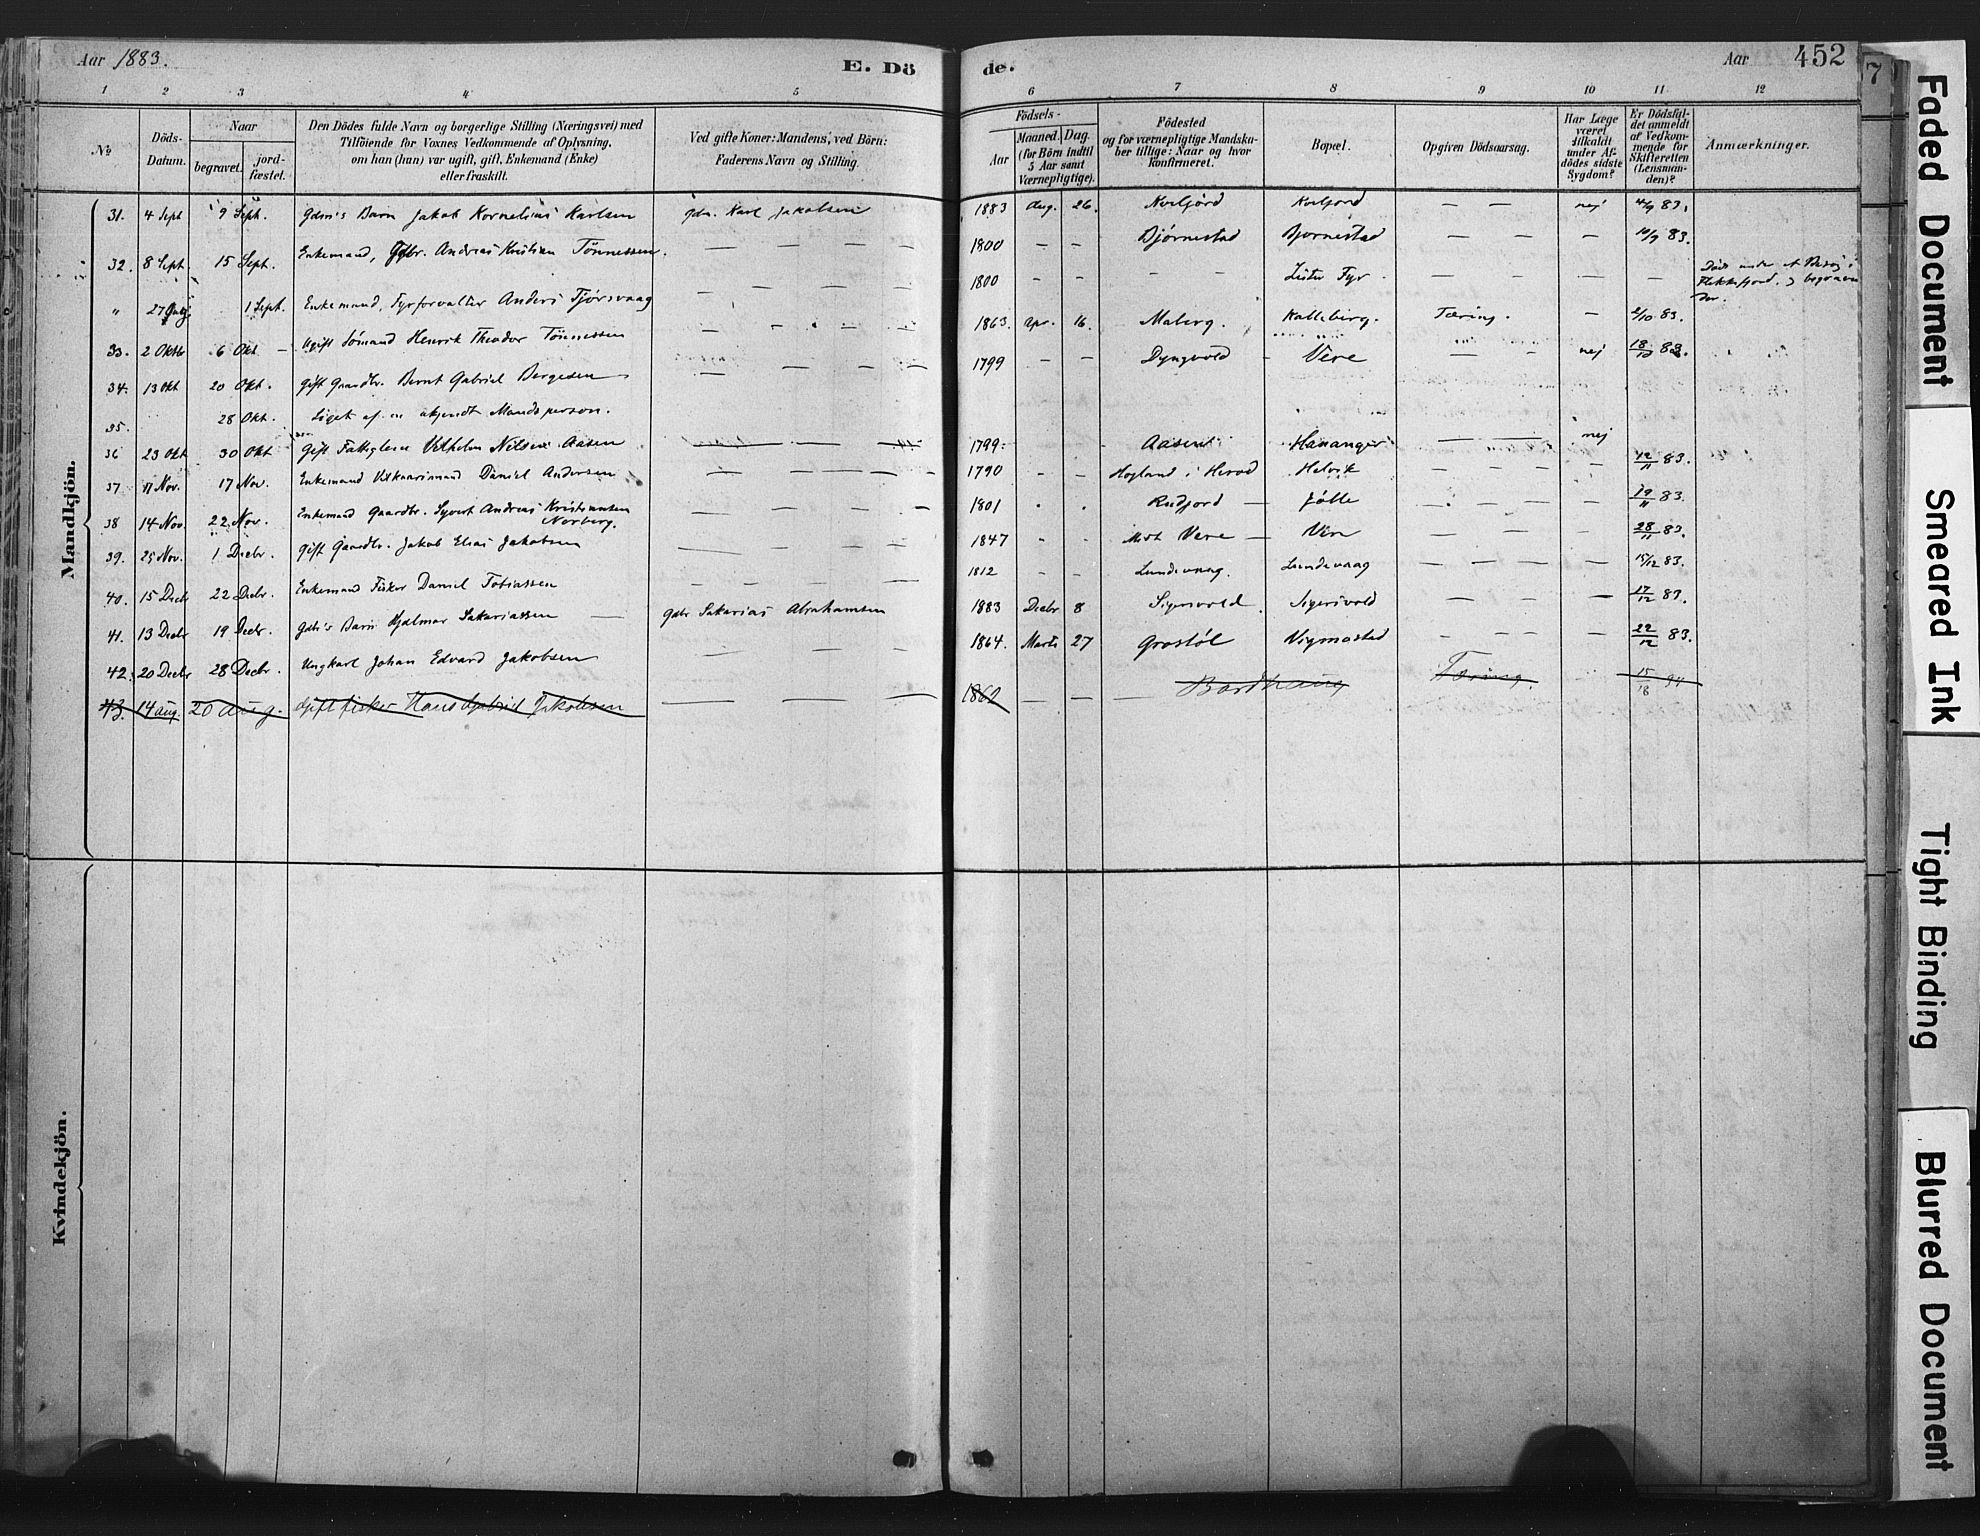 Aar 1883.
E. Dö
de.
Aar 452
7
1 2 3 4 5 6 7 8 9 10 11 12
No
Döds-Datum.
Naar
begravet.
jord-fæstet.
Den Dödes fulde Navn og borgerlige Stilling (Næringsvei) med
Tilföiende for Voxnes Vedkommende af Oplysning,
om han (hun) var ugift, gift, Enkemand (Enke)
eller fraskilt.
Ved gifte Koner: Mandens, ved Börn:
Faderens Navn og Stilling.
Födsels-
Aar
Maaned. Dag.
(for Börn indtil
5 Aar samt
Værnepligtige).
Födested
og for værnepligtige Mandska-
ber tillige: Naar og hvor
konfirmeret.
Bopæl.
Opgiven Dödsaarsag.
Har Læge
været
tilkaldt
under Af-
dödes sidste
Sygdom?
Er Dödsfal-
det anmeldt
af Vedkom-
mende for
Skifteretten
(Lensman-
den)?
Anmærkninger.
Mandkjön.
31. 4 Sept 9 Sept. Gdm's Barn Jakob Kornelius Karlsen gdm. Karl Jakobsen 1883 Aug. 26. Kvelfjord Kvelfjord — — nej 4/9 83.
32. 8 Sept. 15 Sept. Enkemand, Gdbr. Andreas Kristian Tönnessen. — — — — 1800 — — Bjørnestad Bjørnestad — — — 10/9 83.
" 27 1 Sept. Enkemand, Fyrforvalter Anders Tjörsvaag — — — — 1800 - - - - Lister Fyr — — — — Död under et Besög i Flekkefjord, og begraven der.
33. 2 Oktbr 6 Okt — Ugift Sömand Henrik Theodor Tönnessen — — — — 1863. Apr. 16. Maberg. Kalleberg. Tæring. — 2/10 83.
34. 13 Okt 20 Okt. Gift Gaardbr. Bernt Gabriel Bergesen — — — — 1799 — — Dyngvold — Vere — — nej 18/10 83.
35. 28 Okt. Liget af en ukjendt Mandsperson.
36 23 Okt 30 Okt Gift Fattiglem Vilhelm Nilsen Aasen 1799. Aasen Hananger — — nej
37 11 Nov. 17 Nov. Enkemand Vilkaarsmand Daniel Andersen — — — — 1790 - — Hogland i Herod Helvik — — — — 12/11 83.
38 14 Nov. 22 Nov. Enkemand Gaardbr. Syvert Andreas Kristensen Norberg. — — — — 1801 Rudjord — Jölle — — — — 19/11 83.
39. 25 Nov. 1 Decbr. Gift Gaardbr. Jakob Elias Jakobsen — — — — 1847 Midt Vere — Vere — — — — 28/11 83.
40. 15 Decbr 22 Decbr. Enkemand Fisker Daniel Tobiassen — — — — 1812 - - Lundevaag. Lundevaag — — — — 15/12 83.
41. 13 Decbr 19 Decbr. Gdbr's Barn Hjalmar Sakariassen — Gdbr Sakarias Abrahamsen 1883 Decbr 8 Sigersvold Sigersvold — — — 17/12 83.
42. 20 Decbr 28 Decbr. Ungkarl Johan Edvard Jakobsen — — — 1864. Marts 27 Grostöl Vigmostad — — — — 22/12 83.
43. 14 aug. 20 aug. Gift fisker Hans Gabriel Jakobsen — — — 1860 — — — Bordhaug Tæring. 15/18 94
Kvindekjön.
Faded Document
Smeared Ink
Tight Binding
Blurred Document